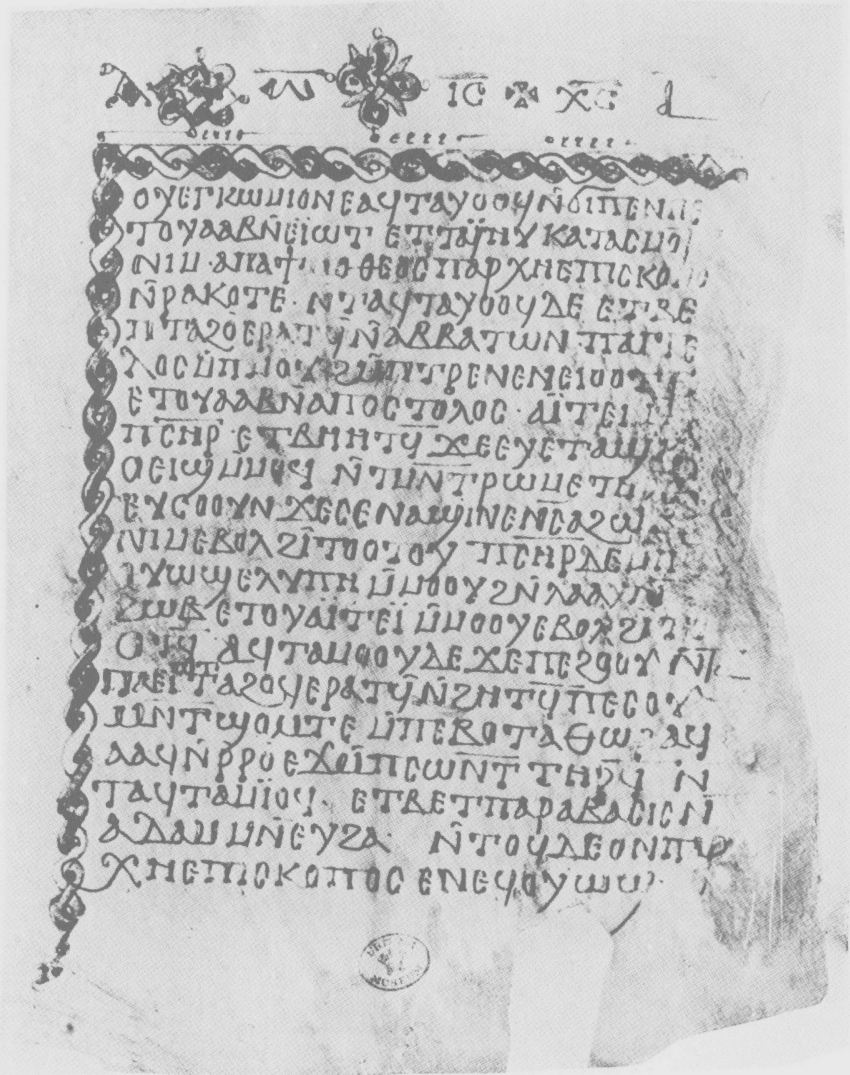 ⲓ̅ⲥ̅ ⲭ̅ⲥ̅
ⲟⲩⲉⲅⲕⲱⲙⲓⲟⲛ ⲉⲁϥⲧⲁⲩⲟⲟϥ ⲛ̄ϭⲓ ⲡⲉⲛ
ⲧⲟⲩⲁⲁⲃ ⲛ̄ⲉⲓⲱⲧ ⲉⲧⲧⲁⲓ̈ⲏⲩ ⲕⲁⲧⲁ ⲥⲙⲟⲧ
ⲛⲓⲙ · ⲁⲡⲁ ⲡⲁⲣⲭⲏⲉⲡⲓⲥⲕⲟ
ⲛ̄ⲣⲁⲕⲟⲧⲉ · ⲛⲧⲁϥⲧⲁⲩⲟⲟϥ ⲇⲉ ⲉⲧⲃⲉ
ⲡⲧⲁϩⲟ ⲉⲣⲁⲧϥ̄ ⲛ̄ⲁⲃⲃⲁⲧⲱⲛ ⲡⲁⲅⲅⲉ
ⲗⲟⲥ ⲙ̄ⲡⲙⲟⲩ ϩⲙ̄ⲡⲧⲣⲉⲛⲉⲛⲉⲓⲟⲟⲧⲉ
ⲉⲧⲟⲩⲁⲁⲃ ⲛ̄ⲁⲡⲟⲥⲧⲟⲗⲟⲥ · ⲁⲓⲧⲉⲓ
ⲡⲥⲏⲣ · ⲉⲧⲃⲏⲏⲧϥ̄ ϫⲉ ⲉⲩⲉⲧⲁϣⲉ
ⲟⲉⲓϣ ⲙ̄ⲙⲟϥ ⲛ̄ⲧⲙⲛ̄ⲧⲣⲱⲙⲉ
ⲉⲩⲥⲟⲟⲩⲛ ϫⲉ ⲥⲉⲛⲁϣⲓⲛⲉ ⲛ̄ⲥⲁ ϩⲱⲃ
ⲛⲓⲙ ⲉⲃⲟⲗ ϩⲓⲧⲟⲟⲧⲟⲩ ⲡⲥⲏⲣ ⲇⲉ ⲙⲡ
ϥⲟⲩⲱϣ ⲉⲗⲩⲡⲏ ⲙ̄ⲙⲟⲟⲩ ϩⲛ̄ⲗⲁⲁⲩ ⲛ̄
ϩⲱⲃ ⲉⲧⲟⲩⲁⲓⲧⲉⲓ ⲙ̄ⲙⲟⲟⲩ ⲉⲃⲟⲗ ϩⲓⲧ
ⲟⲧϥ̄ ⲁϥⲧⲁⲙⲟⲟⲩ ⲇⲉ ϫⲉ ⲡⲉϩⲟⲟⲩ ⲛ̄
ⲡⲁⲉⲓⲱⲧ ⲧⲁϩⲟϥ ⲉⲣⲁⲧϥ̄ ⲛ̄ϩⲏⲧϥ̄ ⲡⲉ ⲥⲟⲩ
ⲙⲛ̄ⲧϣⲟⲙⲧⲉ ⲙ̄ⲡⲉⲃⲟⲧ ⲁⲑⲱⲣ ⲁϥ
ⲁⲁϥ ⲛ̄ⲣ̄ⲣⲟ ⲉϫⲙ̄ ⲡⲥⲱⲛⲧ ⲧⲏⲣϥ̄ ⲛ̄
ⲧⲁϥⲧⲁⲙⲓⲟϥ · ⲉⲧⲃⲉ ⲧⲡⲁⲣⲁⲃⲁⲥⲓⲥ ⲛ̄
ⲁⲇⲁⲙ ⲙⲛ̄ ⲉⲩϩⲁ ⲛ̄ⲧⲟϥ ⲇⲉ ⲟⲛ ⲡⲁⲣ
ⲭⲏⲉⲡⲓⲥⲕⲟⲡⲟⲥ ⲉⲛⲉϥⲟⲩⲱϣ